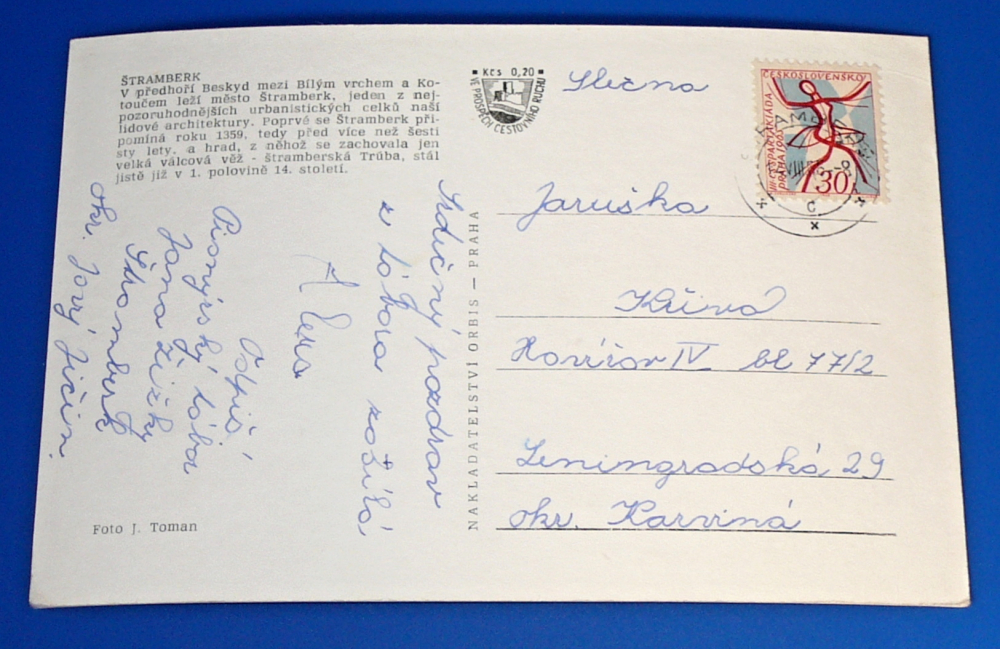 ŠTRAMBERK
V předhoří Beskyd mezi Bílým vrchem a Ko-
toučem leží město Štramberk, jeden z nej-
pozoruhodnějších urbanistických celků naší
lidové architektury. Poprvé se Štramberk při-
pomíná roku 1359, tedy před více než šesti
sty lety. a hrad, z něhož se zachovala jen
velká válcová věž - štramberská Trúba, stál
jistě již v 1. polovině 14. století.
Kčs 0,20
VE PROSPĚCH CESTOVNÍHO RUCHU
ČESKOSLOVENSKO
III. CELOST. SPARTAKIÁDA
PRAHA 1965
30
Slečna
Jaruška
Křivá
Havířov IV bl 77/2
Leningradská 29
okr. Karviná
Srdečný pozdrav
z tábora zasílá
Odpiš!
Pionýrský tábor
Jana Žižky
Štramberk
okr. Nový Jičín
NAKLADATELSTVÍ ORBIS — PRAHA
Foto J. Toman